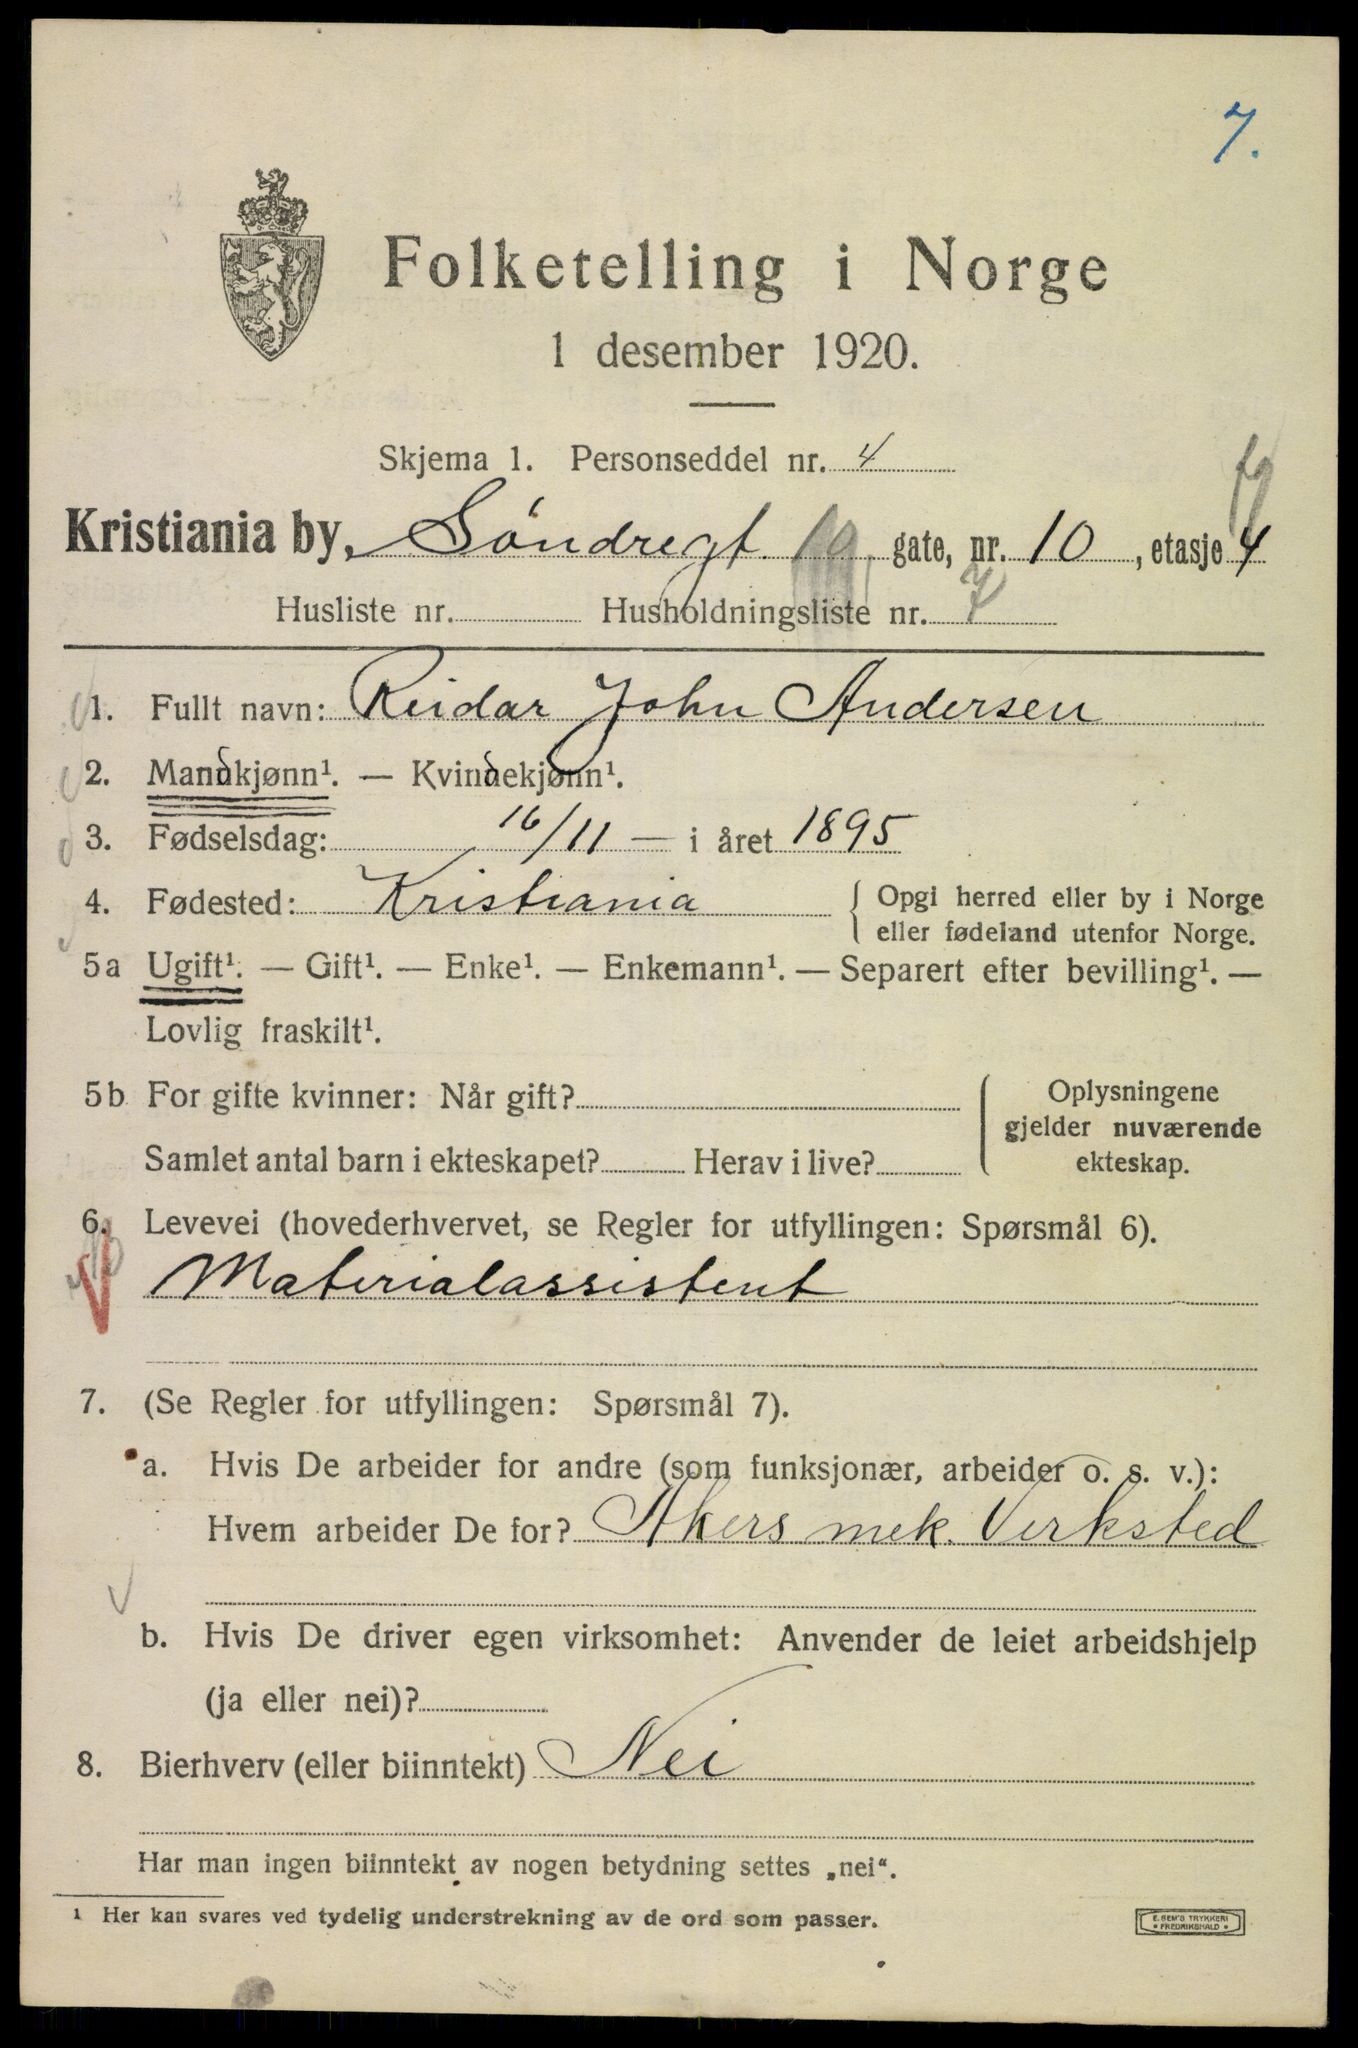 7.
Folketelling i Norge
1 desember 1920.
Skjema 1. Personseddel nr. 4
Kristiania by, Søndregt. 10 gate, nr. 10, etasje 4
Husliste nr. Husholdningsliste nr. 7
1. Fullt navn: Reidar John Andersen
2. Mandkjønn¹. — Kvindekjønn¹.
3. Fødselsdag: 16/11 — i året 1895
4. Fødested: Kristiania { Opgi herred eller by i Norge
eller fødeland utenfor Norge.
5a Ugift¹. — Gift¹. — Enke¹. — Enkemann¹. — Separert efter bevilling¹. —
Lovlig fraskilt¹.
5b For gifte kvinner: Når gift?
Samlet antal barn i ekteskapet? Herav i live?
Oplysningene
gjelder nuværende
ekteskap.
6. Levevei (hovederhvervet, se Regler for utfyllingen: Spørsmål 6).
Materialassistent
7. (Se Regler for utfyllingen: Spørsmål 7).
a. Hvis De arbeider for andre (som funksjonær, arbeider o. s. v.):
Hvem arbeider De for? Akers mek. Verksted
b. Hvis De driver egen virksomhet: Anvender de leiet arbeidshjelp
(ja eller nei)?
8. Bierhverv (eller biinntekt) Nei
Har man ingen biinntekt av nogen betydning settes „nei“.
¹ Her kan svares ved tydelig understrekning av de ord som passer.
E. SEM'S TRYKKERI
• FREDRIKSHALD •